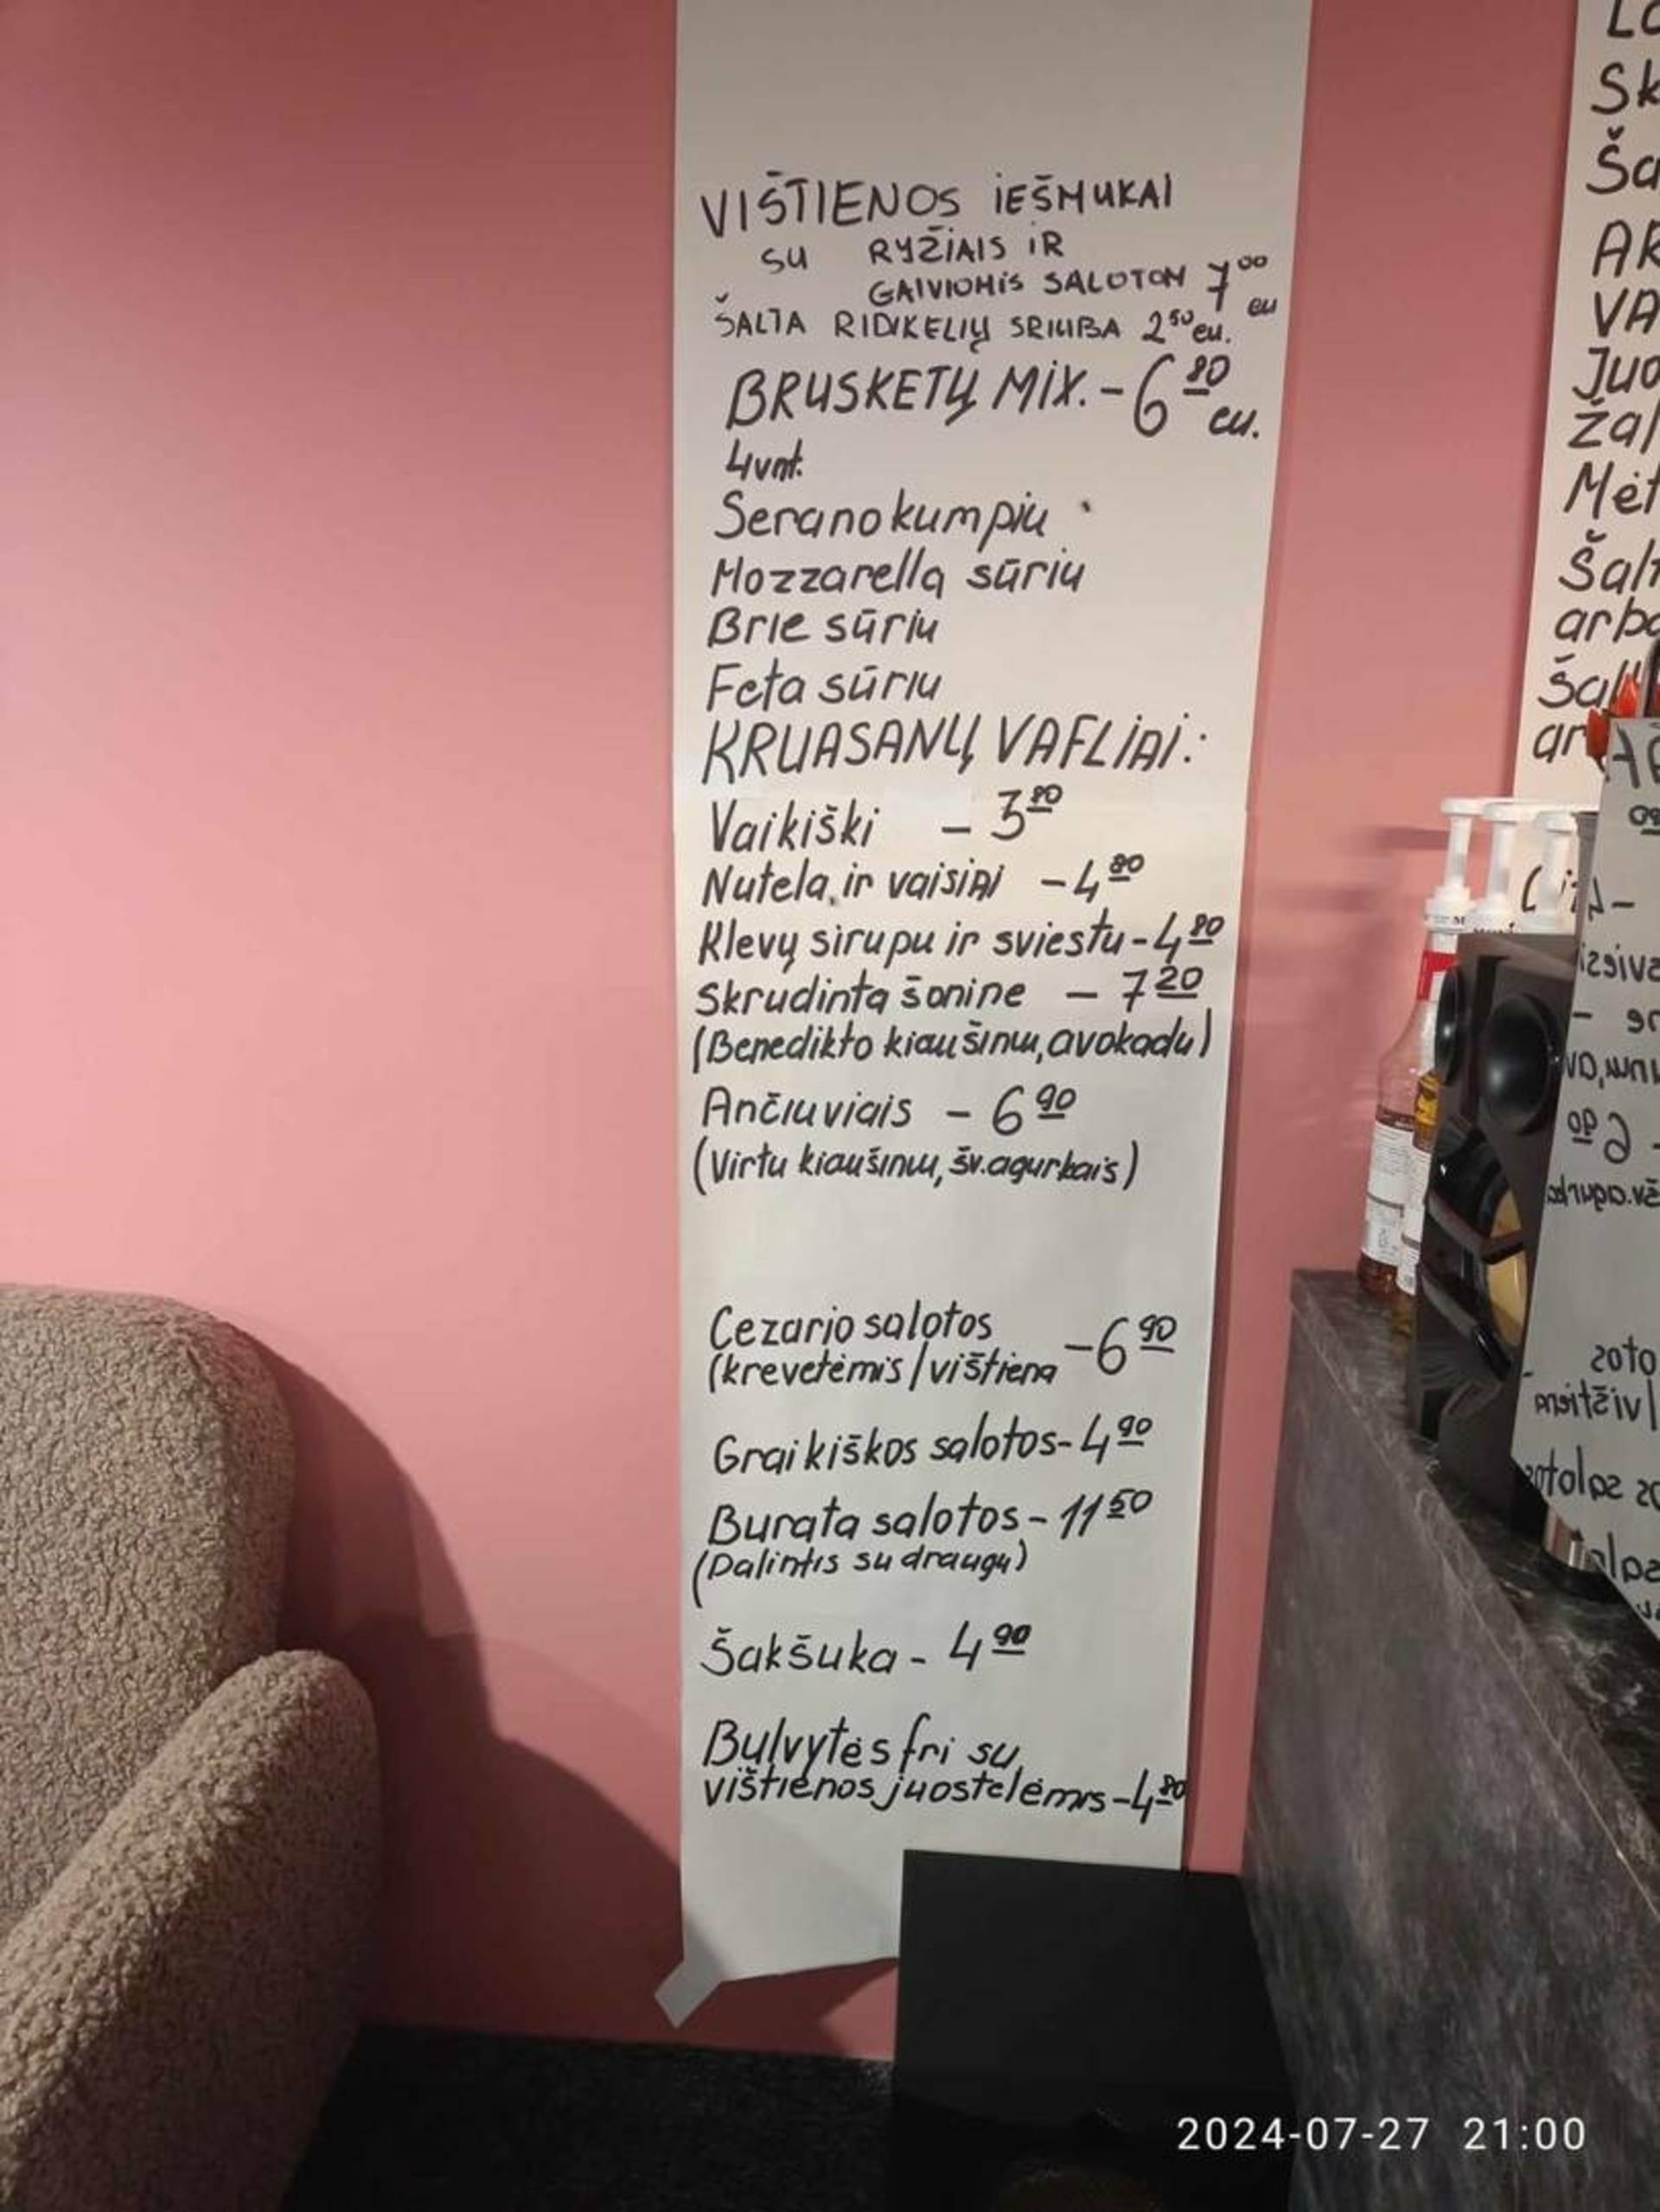 VIŠTIENOS IEŠMUKAI
SU RYŽIAIS IR
GAIVIOMIS SALOTOM 7⁰⁰ eu
ŠALTA RIDIKELIŲ SRIUBA 2⁵⁰ eu.
BRUSKETŲ MIX. - 6⁸⁰ eu.
4vnt.
Serano kumpiu
Mozzarella sūriu
Brie sūriu
Feta sūriu
KRUASANŲ VAFLIAI:
Vaikiški - 3⁸⁰
Nutela ir vaisiai - 4⁸⁰
Klevų sirupu ir sviestu - 4⁸⁰
Skrudinta šonine - 7²⁰
(Benedikto kiaušiniu, avokadu)
Ančiuviais - 6⁹⁰
(Virtu kiaušiniu, šv.agurkais)
Cezario salotos
(krevetėmis / vištiena - 6⁹⁰
Graikiškos salotos - 4⁹⁰
Burata salotos - 11⁵⁰
(Dalintis su draugu)
Šakšuka - 4⁹⁰
Bulvytės fri su
vištienos juostelėmis - 4⁸⁰
Sk
Ša
VA
Juo
žal
Mėt
Šalt
arba
2024-07-27 21:00